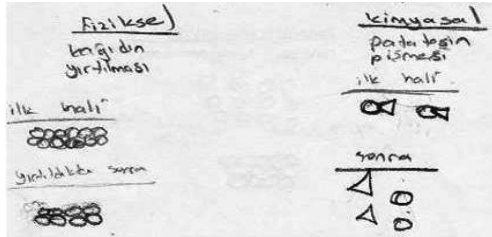 fiziksel
kağıdın
yırtılması
ilk hali
yırtıldıktan sonra
kimyasal
patatesin
pişmesi
ilk hali
sonra